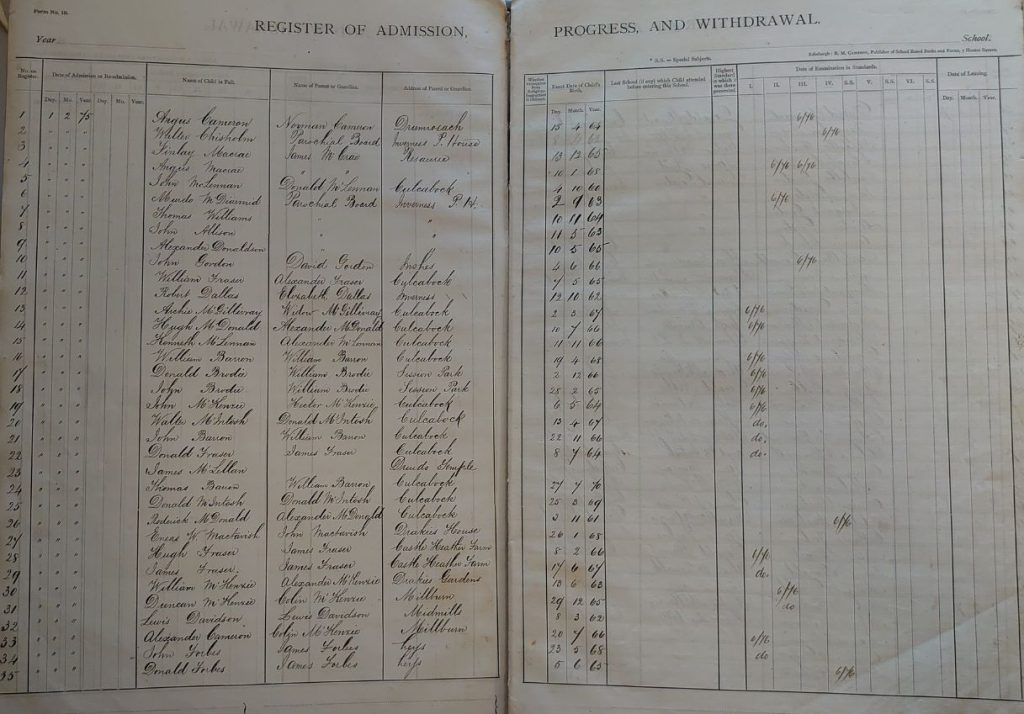 Form No. 18.
REGISTER OF ADMISSION,
Year
No. on Register. Date of Admission or Re-admission. Name of Child in Full. Name of Parent or Guardian. Address of Parent or Guardian.
Day. Mo. Year. Day. Mo. Year.
1 1 2 75 Angus Cameron Norman Cameron Drumrosach
2 " " " Willie Chisholm Parochial Board Inverness P. House
3 " " " Finlay Macrae James McCrae Resaurie
4 " " " Angus Macrae " "
5 " " " John McLennan Donald McLennan Culcabock
6 " " " Murdo McDiarmid Parochial Board Inverness P. H.
7 " " " Thomas Williams " "
8 " " " John Allison " "
9 " " " Alexander Donaldson " "
10 " " " John Gordon David Gordon Inshes
11 " " " William Fraser Alexander Fraser Culcabock
12 " " " Robert Dallas Elizabeth Dallas Inverness
13 " " " Archie McGillivray Widow McGillivray Culcabock
14 " " " Hugh McDonald Alexander McDonald Culcabock
15 " " " Kenneth McLennan Alexander McLennan Culcabock
16 " " " William Barron William Barron Culcabock
17 " " " Donald Brodie William Brodie Session Park
18 " " " John Brodie William Brodie Session Park
19 " " " John McKenzie Hector McKenzie Culcabock
20 " " " Walter McIntosh Donald McIntosh Culcabock
21 " " " John Barron William Barron Culcabock
22 " " " Donald Fraser James Fraser Culcabock
23 " " " James McLellan Druids Temple
24 " " " Thomas Barron William Barron Culcabock
25 " " " Donald McIntosh Donald McIntosh Culcabock
26 " " " Roderick McDonald Alexander McDonald Culcabock
27 " " " Eneas W. Mactavish John Mactavish Drakies House
28 " " " Hugh Fraser James Fraser Castle Heather Farm
29 " " " James Fraser James Fraser Castle Heather Farm
30 " " " William McKenzie Alexander McKenzie Drakies Gardens
31 " " " Duncan McKenzie Colin McKenzie Millburn
32 " " " Lewis Davidson Lewis Davidson Midmills
33 " " " Alexander Cameron Colin McKenzie Millburn
34 " " " John Forbes James Forbes Leys
35 " " " Donald Forbes James Forbes Leys
PROGRESS, AND WITHDRAWAL.
School.
* S.S. = Special Subjects.
Exact Date of Child's Birth. Last School (if any) which Child attended before entering this School. Highest Standard in which it was there presented. Date of Examination in Standards. Date of Leaving.
Day. Month. Year. I. II. III. IV. S.S. V. S.S. VI. S.S. Day. Month. Year.
15 4 64 6/76
6/76
13 12 65
10 1 68 6/76 6/76
4 10 60
2 9 63 6/76
10 11 64
11 5 63
10 5 65
4 6 66 6/76
7 5 65
12 10 62
2 3 67 6/76
10 7 66 6/76
11 11 66
19 4 68 6/76
2 12 66 6/76
28 2 65 6/76
6 5 64 6/76
13 4 67 do.
22 11 66 do.
8 7 64 do.
27 7 70
25 3 69
3 11 61 6/76
26 1 68
8 2 66 6/76
17 6 67 do.
13 6 63 6/76
29 12 65 do
8 3 62
20 7 66 6/76
23 5 68 do
5 6 65 6/76